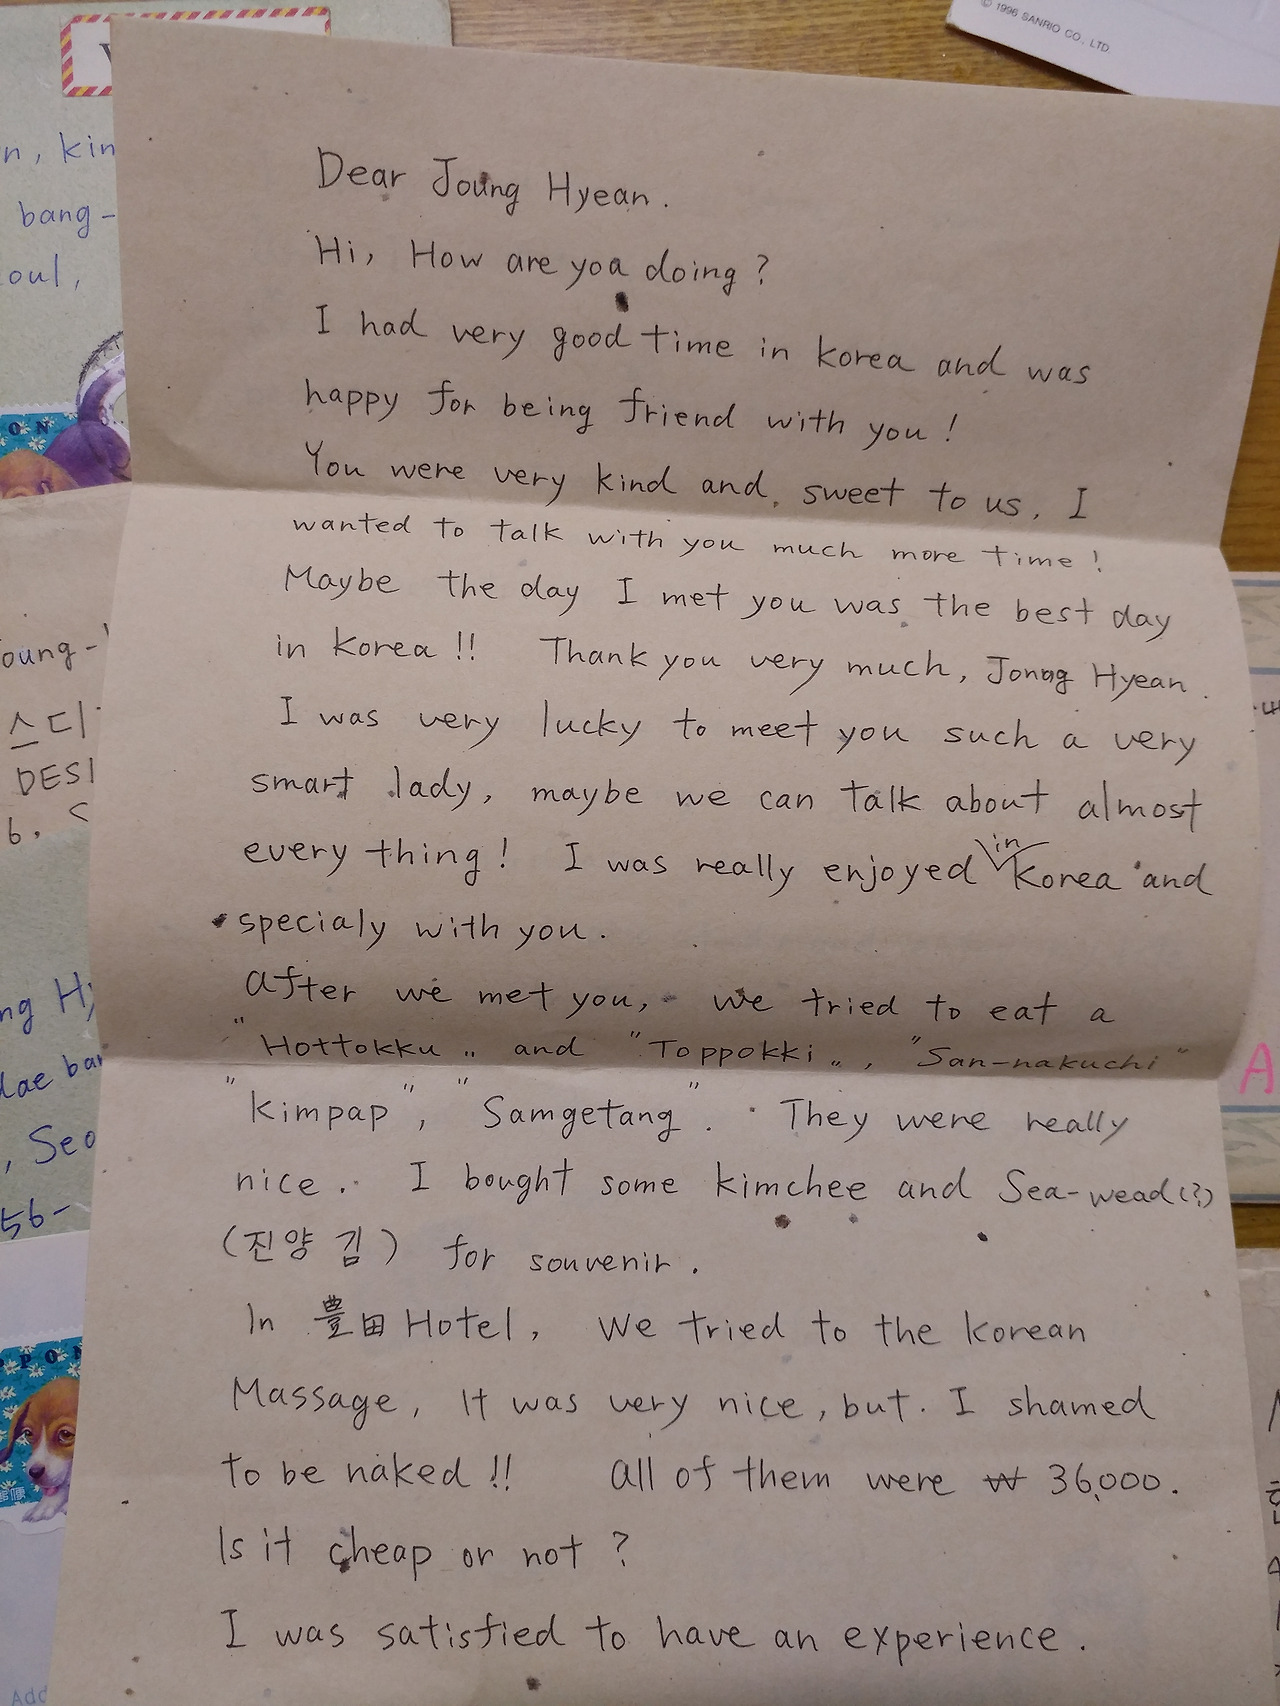 © 1996 SANRIO CO., LTD.
n, kin
bang-
oul,
ON
oung-
스디
DESI
6.
ng Hy
dae ban
, Seo
56-
PPON
郵便
Add
A
Dear Joung Hyean.
Hi, How are you doing?
I had very good time in korea and was
happy for being friend with you!
You were very kind and, sweet to us. I
wanted to talk with you much more time!
Maybe the day I met you was the best day
in korea!! Thank you very much, Joung Hyean.
I was very lucky to meet you such a very
smart lady, maybe we can talk about almost
every thing! I was really enjoyed in Korea and
specialy with you.
After we met you, we tried to eat a
"Hottokku" and "Toppokki", "San-nakuchi"
"kimpap", "Samgetang". They were really
nice. I bought some kimchee and Sea-wead(?)
(진양 김) for souvenir.
In 豊田 Hotel, we tried to the korean
Massage, It was very nice, but. I shamed
to be naked!! All of them were ₩ 36,000.
Is it cheap or not?
I was satisfied to have an experience.